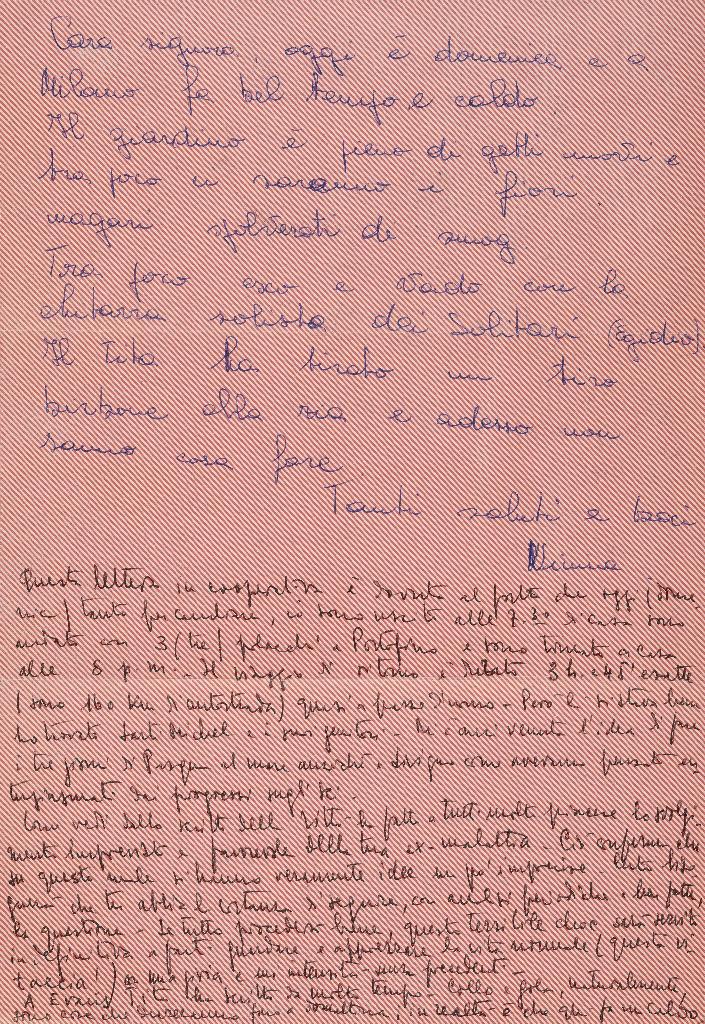 Cara signora, oggi è domenica e a
Milano fa bel tempo e caldo.
Il giardino è pieno di getti nuovi e
tra poco ci saranno i fiori
magari spolverati di smog.
Tra poco esco e vado con la
chitarra solista dei Solitari (Egidio).
Il Tita ha tirato un tiro
birbone alla zia e adesso non
sanno cosa fare
Tanti saluti e baci
Minna
Questa lettera in cooperativa è dovuta al fatto che oggi (dome-
nica) tanto per cambiare, io sono uscito alle 7.30 di casa sono
andato con 3 (tre) a Portofino e sono tornato a casa
alle 8 p.m. - Il viaggio di ritorno è durato 3 h. e 45' esatte
(sono 160 km d'autostrada) quasi a passo d'uomo - Però lì si stava bene
ho trovato e i suoi genitori - Mi è anzi venuta l'idea di fare
i tre giorni di Pasqua al mare anziché a come avevamo pensato
dai progressi sugli sci -
Come vedi dallo scritto della ha fatto a tutti molto piacere lo svolgi-
mento e favorevole della tua ex-malattia - Ciò conferma che
su questo male si hanno veramente idee un po' imprecise -
che tu abbia la costanza di seguire, con analisi periodiche
la questione - Se tutto procederà bene, questo terribile choc sarà servito
in definitiva a farti guardare e apprezzare la vita normale (questa vi-
taccia!) con una gioia e una intensità senza precedenti -
A Evans Tita ha scritto da molto tempo - collo e gola, naturalmente,
sono cose che in realtà è che qui fa un caldo